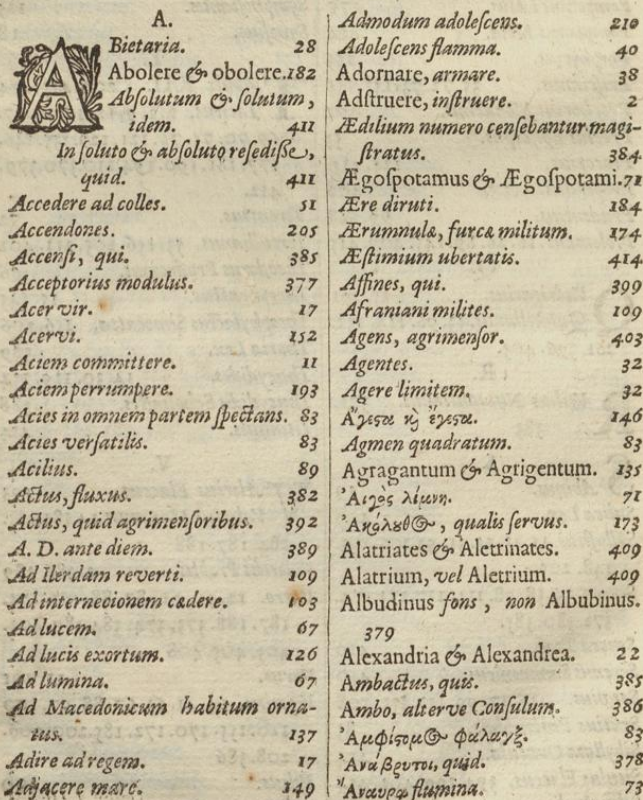 A.
ABietaria. 28
Abolere & obolere. 182
Abſolutum & ſolutum,
idem. 411
In ſoluto & abſoluto reſediſſe,
quid. 411
Accedere ad colles. 51
Accendones. 205
Accenſi, qui. 385
Acceptorius modulus. 377
Acer vir. 17
Acervi. 152
Aciem committere. 11
Aciem perrumpere. 193
Acies in omnem partem ſpectans. 83
Acies verſatilis. 83
Acilius. 89
Actus, fluxus. 382
Actus, quid agrimenſoribus. 392
A. D. ante diem. 389
Ad Ilerdam reverti. 109
Ad internecionem cædere. 103
Ad lucem. 67
Ad lucis exortum. 126
Ad lumina. 67
Ad Macedonicum habitum orna-
tus. 137
Adire ad regem. 17
Adjacere mare. 149
Admodum adoleſcens. 210
Adoleſcens flamma. 40
Adornare, armare. 38
Adſtruere, inſtruere. 2
Ædilium numero cenſebantur magi-
ſtratus. 384
Ægoſpotamus & Ægoſpotami. 71
Ære diruti. 184
Ærumnulæ, furcæ militum. 174
Æſtimium ubertatis. 414
Affines, qui. 399
Afraniani milites. 109
Agens, agrimenſor. 403
Agentes. 32
Agere limitem. 32
Ἄγεςα κὶ ἔγεςα. 146
Agmen quadratum. 83
Agragantum & Agrigentum. 135
Ἀιγὸς λίμνη. 71
Ἀκόλουθος, qualis ſervus. 173
Alatriates & Aletrinates. 409
Alatrium, vel Aletrium. 409
Albudinus fons, non Albubinus.
379
Alexandria & Alexandrea. 22
Ambactus, quis. 385
Ambo, alterve Conſulum. 386
Ἀμφίςομος φάλαγξ. 83
Ἀνάβρυτοι, quid. 378
Ἄναυροι flumina. 73